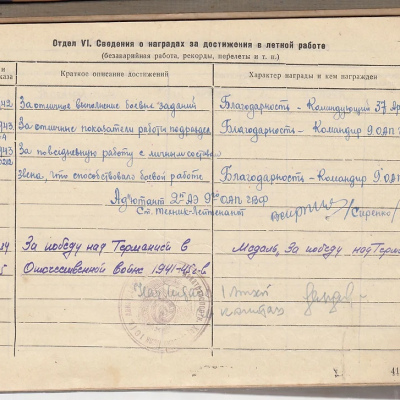 Отдел VI. Сведения о наградах за достижения в летной работе
(безаварийная работа, рекорды, перелеты и т. п.)
и
каза
Краткое описание достижений
Характер награды и кем награжден
42 За отличное выполнение боевых заданий Благодарность - Командующий 37 Ар
943 За отличные показатели работы подраздел Благодарность - Командир 9 ОАП ГВ
943 За повседневную работу с личным составом
звена, что способствовало боевой работе Благодарность - Командир 9 ОАП
Адъютант 2ой АЭ 9го ОАП ГВФ
Ст. техник-лейтенант /Сиренко/
За победу над Германией в Медаль „За победу над Герм
Отечественной войне 1941-45 г-в
Нач
капитан
41